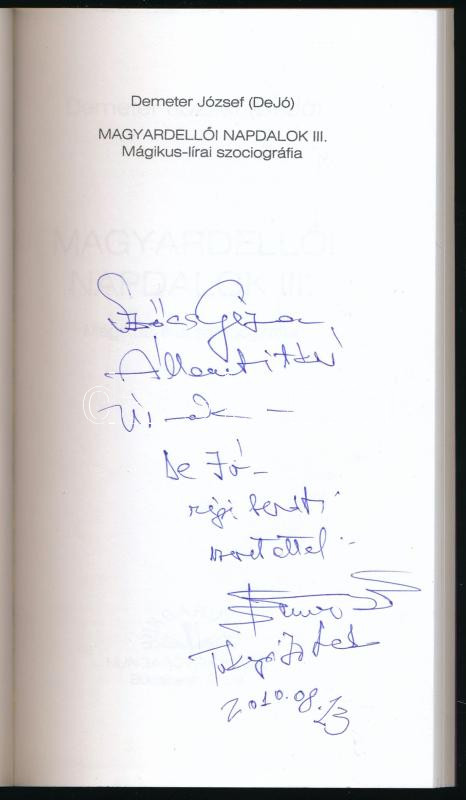 Demeter József (DeJó)
MAGYARDELLŐI NAPDALOK III.
Mágikus-lírai szociográfia
MAGYARDELLŐI
NAPDALOK III.
Szőcs Géza
Államtitkár
Úr-nak -
De Jó-
régi baráti
szeretettel -
2010.08.23